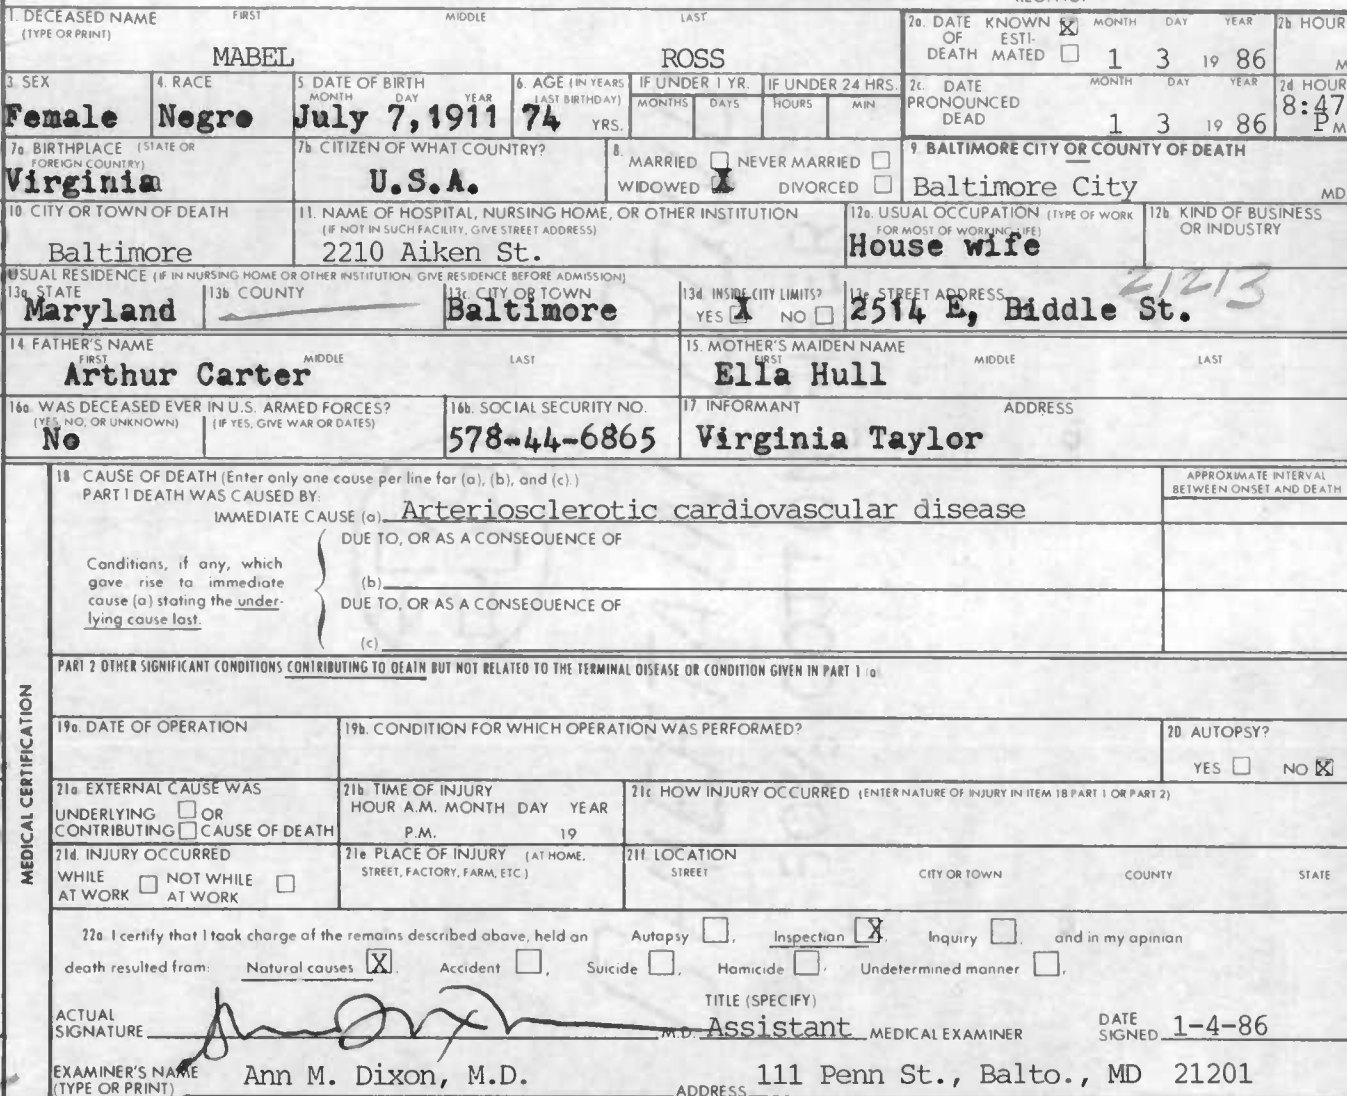 1. DECEASED NAME FIRST MIDDLE LAST
(TYPE OR PRINT)
MABEL ROSS
2a. DATE KNOWN X MONTH DAY YEAR
OF ESTI-
DEATH MATED 1 3 19 86
2b HOUR
M
3. SEX
Female
4. RACE
Negro
5 DATE OF BIRTH
MONTH DAY YEAR
July 7,1911
6. AGE (IN YEARS
LAST BIRTHDAY)
74 YRS.
IF UNDER 1 YR.
MONTHS DAYS
IF UNDER 24 HRS.
HOURS MIN
2c. DATE MONTH DAY YEAR
PRONOUNCED
DEAD 1 3 19 86
2d HOUR
8:47
P M
7a. BIRTHPLACE (STATE OR
FOREIGN COUNTRY)
Virginia
7b. CITIZEN OF WHAT COUNTRY?
U.S.A.
8.
MARRIED NEVER MARRIED
WIDOWED X DIVORCED
9. BALTIMORE CITY OR COUNTY OF DEATH
Baltimore City MD
10. CITY OR TOWN OF DEATH
Baltimore
11. NAME OF HOSPITAL, NURSING HOME, OR OTHER INSTITUTION
(IF NOT IN SUCH FACILITY, GIVE STREET ADDRESS)
2210 Aiken St.
12a. USUAL OCCUPATION (TYPE OF WORK
FOR MOST OF WORKING LIFE)
House wife
12b. KIND OF BUSINESS
OR INDUSTRY
USUAL RESIDENCE (IF IN NURSING HOME OR OTHER INSTITUTION, GIVE RESIDENCE BEFORE ADMISSION)
13a. STATE
Maryland
13b COUNTY
13c. CITY OR TOWN
Baltimore
13d. INSIDE CITY LIMITS?
YES X NO
13e. STREET ADDRESS 21213
2514 E, Biddle St.
14 FATHER'S NAME
FIRST MIDDLE LAST
Arthur Carter
15. MOTHER'S MAIDEN NAME
FIRST MIDDLE LAST
Ella Hull
16a. WAS DECEASED EVER IN U.S. ARMED FORCES?
(YES, NO, OR UNKNOWN) (IF YES, GIVE WAR OR DATES)
No
16b. SOCIAL SECURITY NO.
578-44-6865
17 INFORMANT ADDRESS
Virginia Taylor
MEDICAL CERTIFICATION
18 CAUSE OF DEATH (Enter only one cause per line for (a), (b), and (c).)
PART I DEATH WAS CAUSED BY:
IMMEDIATE CAUSE (a) Arteriosclerotic cardiovascular disease
APPROXIMATE INTERVAL
BETWEEN ONSET AND DEATH
DUE TO, OR AS A CONSEQUENCE OF
Conditions, if any, which
gave rise to immediate
cause (a) stating the under-
lying cause last.
(b)
DUE TO, OR AS A CONSEQUENCE OF
(c)
PART 2 OTHER SIGNIFICANT CONDITIONS CONTRIBUTING TO DEATH BUT NOT RELATED TO THE TERMINAL DISEASE OR CONDITION GIVEN IN PART 1 (a)
19a. DATE OF OPERATION
19b. CONDITION FOR WHICH OPERATION WAS PERFORMED?
20. AUTOPSY?
YES NO X
21a EXTERNAL CAUSE WAS
UNDERLYING OR
CONTRIBUTING CAUSE OF DEATH
21b TIME OF INJURY
HOUR A.M. MONTH DAY YEAR
P.M. 19
21c HOW INJURY OCCURRED (ENTER NATURE OF INJURY IN ITEM 18 PART 1 OR PART 2)
21d. INJURY OCCURRED
WHILE NOT WHILE
AT WORK AT WORK
21e PLACE OF INJURY (AT HOME,
STREET, FACTORY, FARM, ETC)
21f. LOCATION
STREET CITY OR TOWN COUNTY STATE
22a I certify that I took charge of the remains described above, held an Autopsy , Inspection X , Inquiry , and in my opinion
death resulted from: Natural causes X , Accident , Suicide , Homicide , Undetermined manner ,
ACTUAL
SIGNATURE
M.D.
TITLE (SPECIFY)
Assistant MEDICAL EXAMINER
DATE
SIGNED 1-4-86
EXAMINER'S NAME
(TYPE OR PRINT) Ann M. Dixon, M.D.
ADDRESS 111 Penn St., Balto., MD 21201